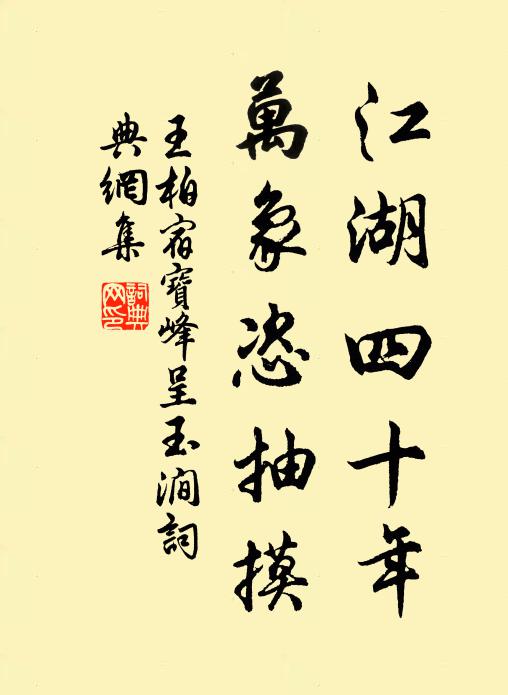 江湖四十年
萬象恣抽摸
王柏宿寶峰呈玉澗詞
典網集
詞典網印